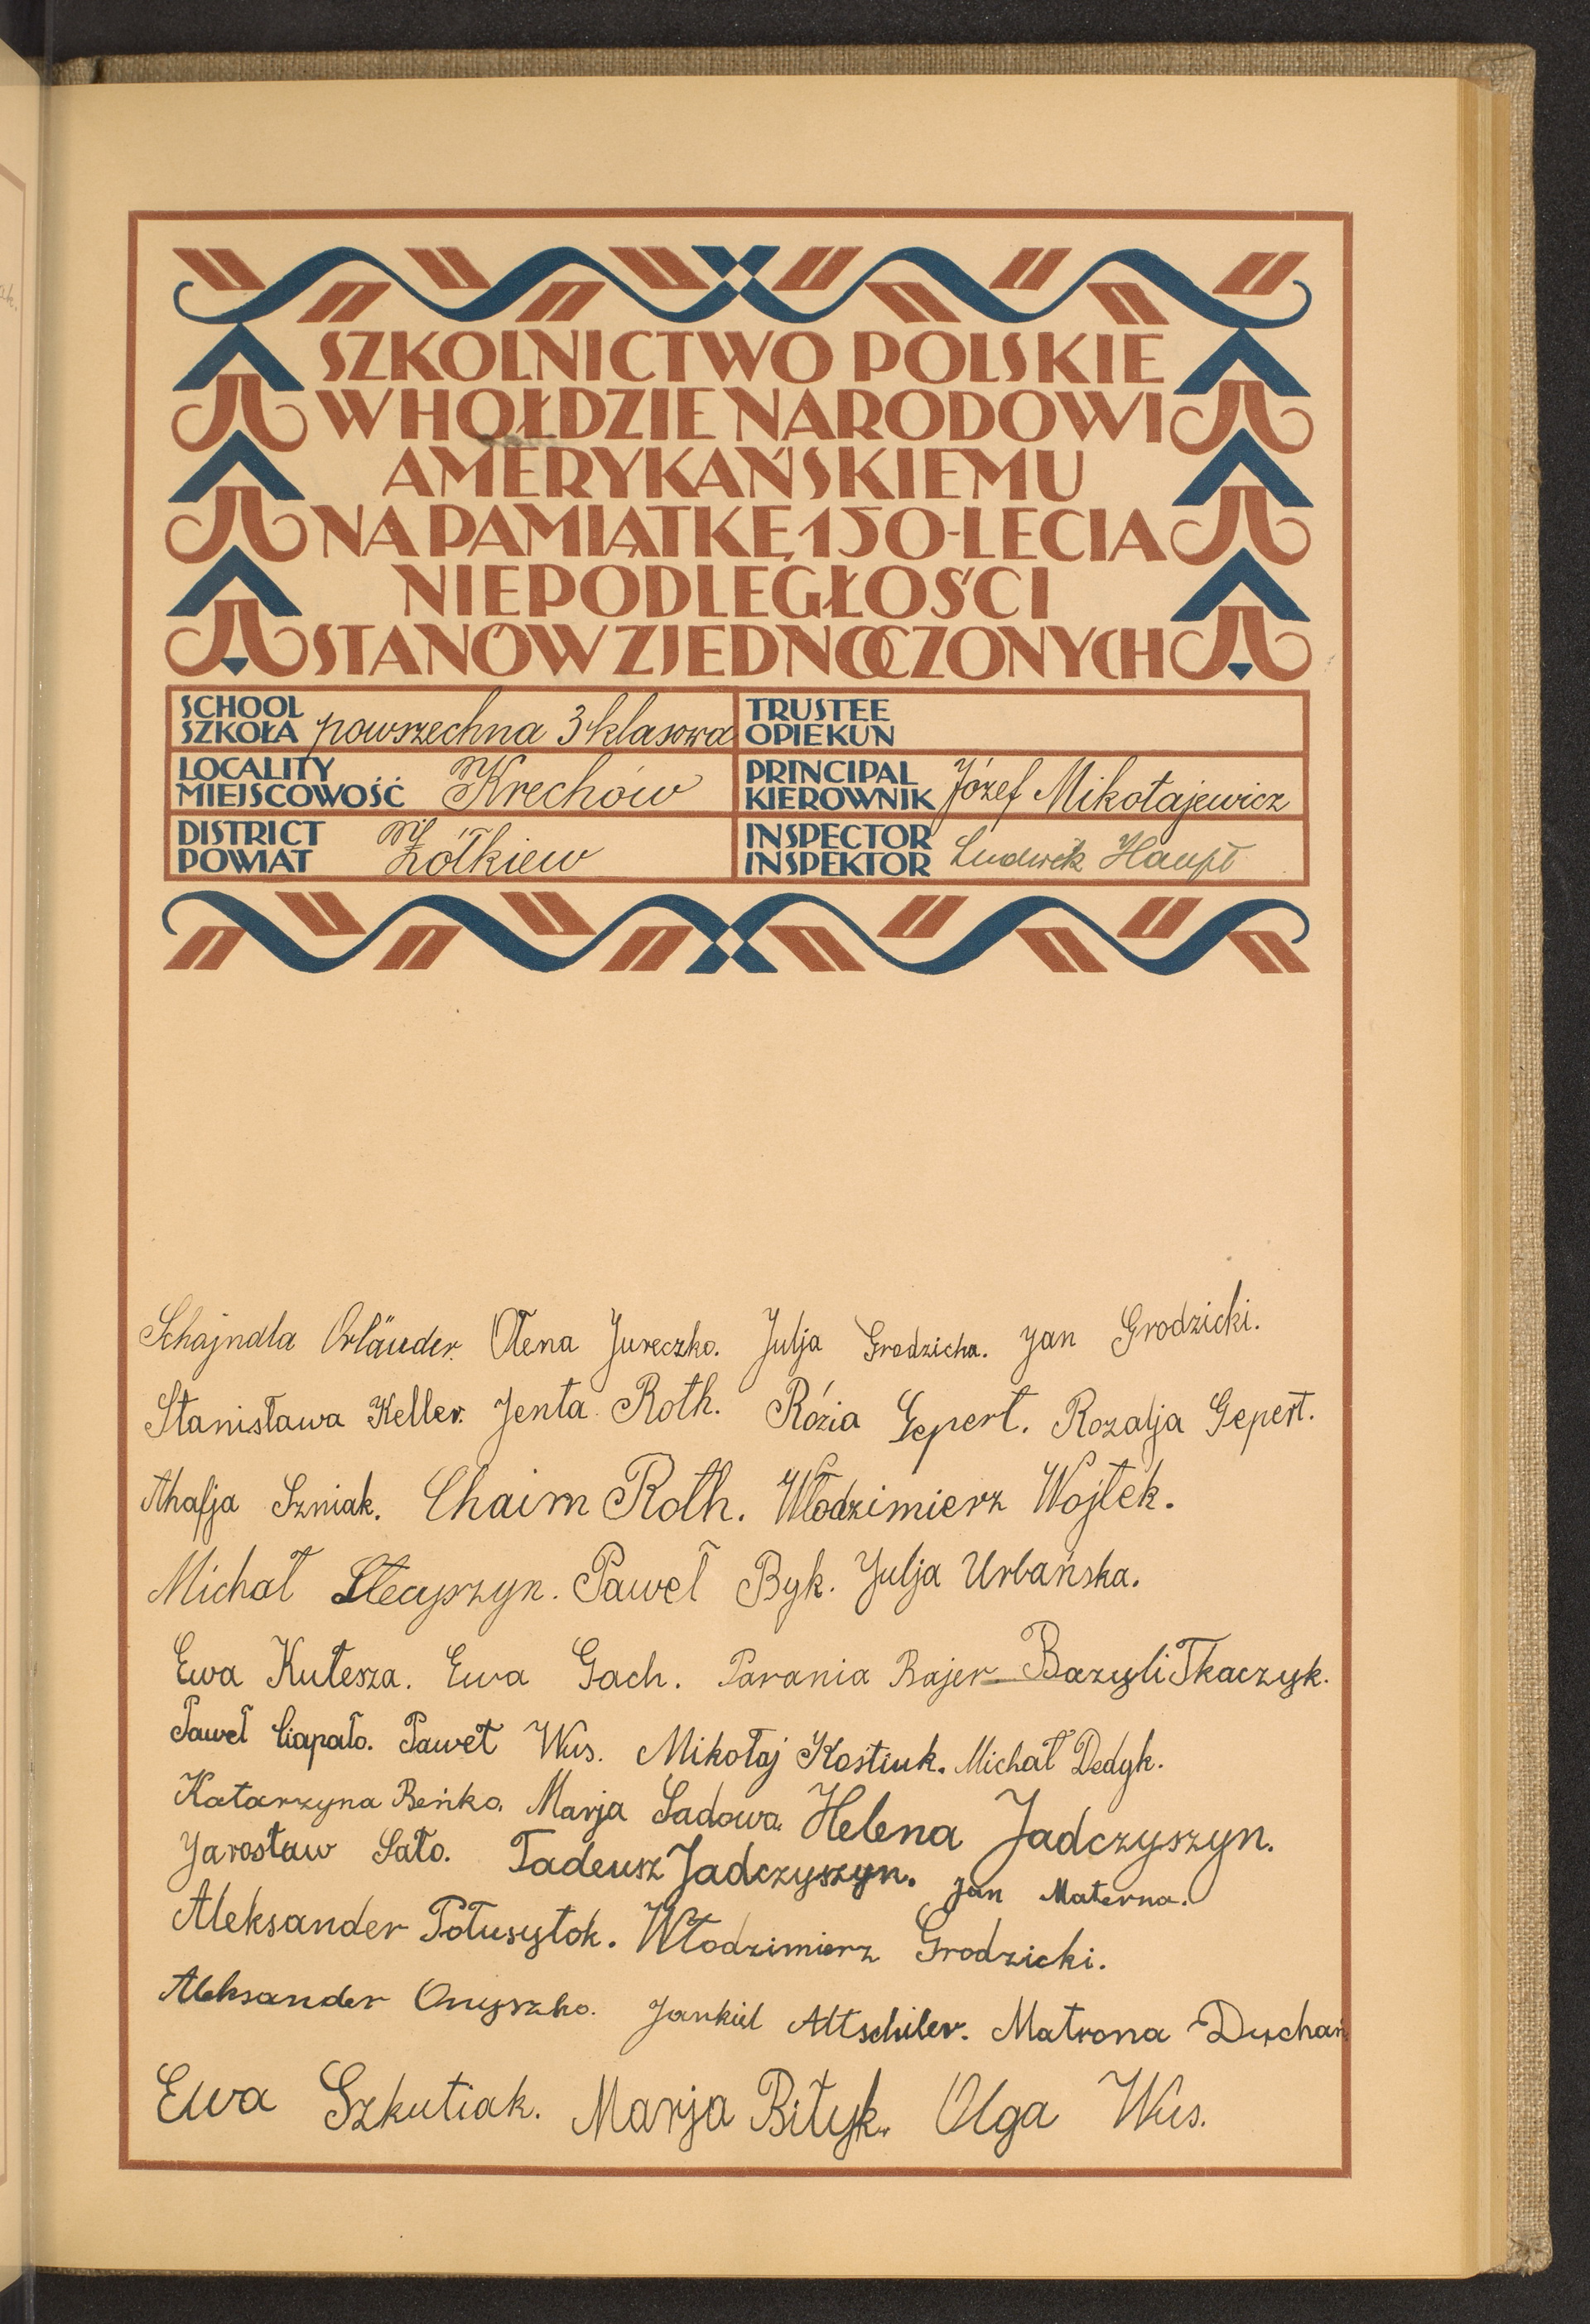 SZKOLNICTWO POLSKIE
W HOŁDZIE NARODOWI
AMERYKAŃSKIEMU
NA PAMIĄTKĘ 150-LECIA
NIEPODLEGŁOŚCI
STANÓW ZJEDNOCZONYCH
SCHOOL
SZKOŁA powszechna 3 klasowa
TRUSTEE
OPIEKUN
LOCALITY
MIEJSCOWOŚĆ Krechów
PRINCIPAL
KIEROWNIK Józef Mikołajewicz
DISTRICT
POWIAT Żółkiew
INSPECTOR
INSPEKTOR Ludwik Haupt
Schajndla Orläuder. Ołena Jureczko. Julja Grodzicka. Jan Grodzicki.
Stanisława Keller. Jenta Roth. Rózia Gepert. Rozalja Gepert.
Ahafja Szniak. Chaim Roth. Włodzimierz Wojtek.
Michał Stecyszyn. Paweł Byk. Julja Urbańska.
Ewa Kułesza. Ewa Gach. Parania Bajer Bazyli Tkaczyk.
Paweł Ciapało. Paweł Wus. Mikołaj Kostiuk. Michał Dedyk.
Katarzyna Beńko. Marja Sadowa. Helena Jadczyszyn.
Jarosław Sało. Tadeusz Jadczyszyn. Jan Materna.
Aleksander Połusytok. Włodzimierz Grodzicki.
Aleksander Onyszko. Jankiel Altschiler. Matrona Duchań
Ewa Szkutiak. Marja Bityk. Olga Wus.